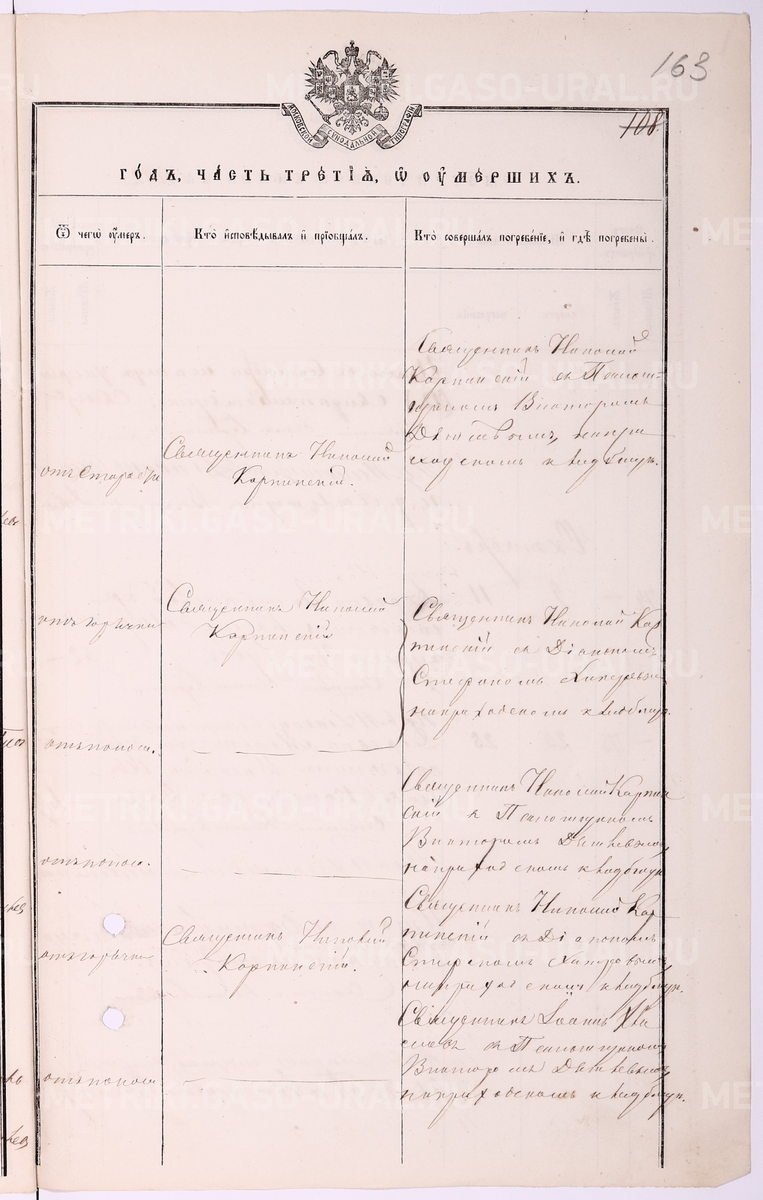 163
108
МОСКОВСКОЙ СИНОДАЛЬНОЙ ТИПОГРАФІИ
ГО́ДЪ, ЧА́СТЬ ТРЕ́ТІѦ, Ѡ҆ ОУ҆МЕ́РШИХЪ.
Ѿ чегѡ̀ оу҆́меръ.
Кто̀ и҆сповѣ́дывалъ и҆ пріѡбща́лъ.
Кто̀ соверша́лъ погребе́нїе, и҆ гдѣ̀ погребены̀.
отъ старости
Священникъ Николай
Карпинскій.
Священникъ Николай
Карпинскій съ Псалом-
щикомъ Викторомъ
на при
ходскомъ кладбищѣ.
отъ горячки
Священникъ Николай
Карпинскій
отъ поноса.
Священникъ Николай Кар
пинскій съ Діакономъ
Стефаномъ
на приходскомъ кладбищѣ.
отъ поноса.
Священникъ Николай Карпин
скій съ Псаломщикомъ
Викторомъ
на приходскомъ кладбищѣ
отъ горячки
Священникъ Николай
Карпинскій.
Священникъ Николай Кар
пинскій съ Діакономъ
Стефаномъ
на приходскомъ кладбищѣ.
отъ поноса
Священникъ Іоаннъ
съ Псаломщикомъ
Викторомъ
на приходскомъ кладбищѣ.
METRIKI.GASO-URAL.RU